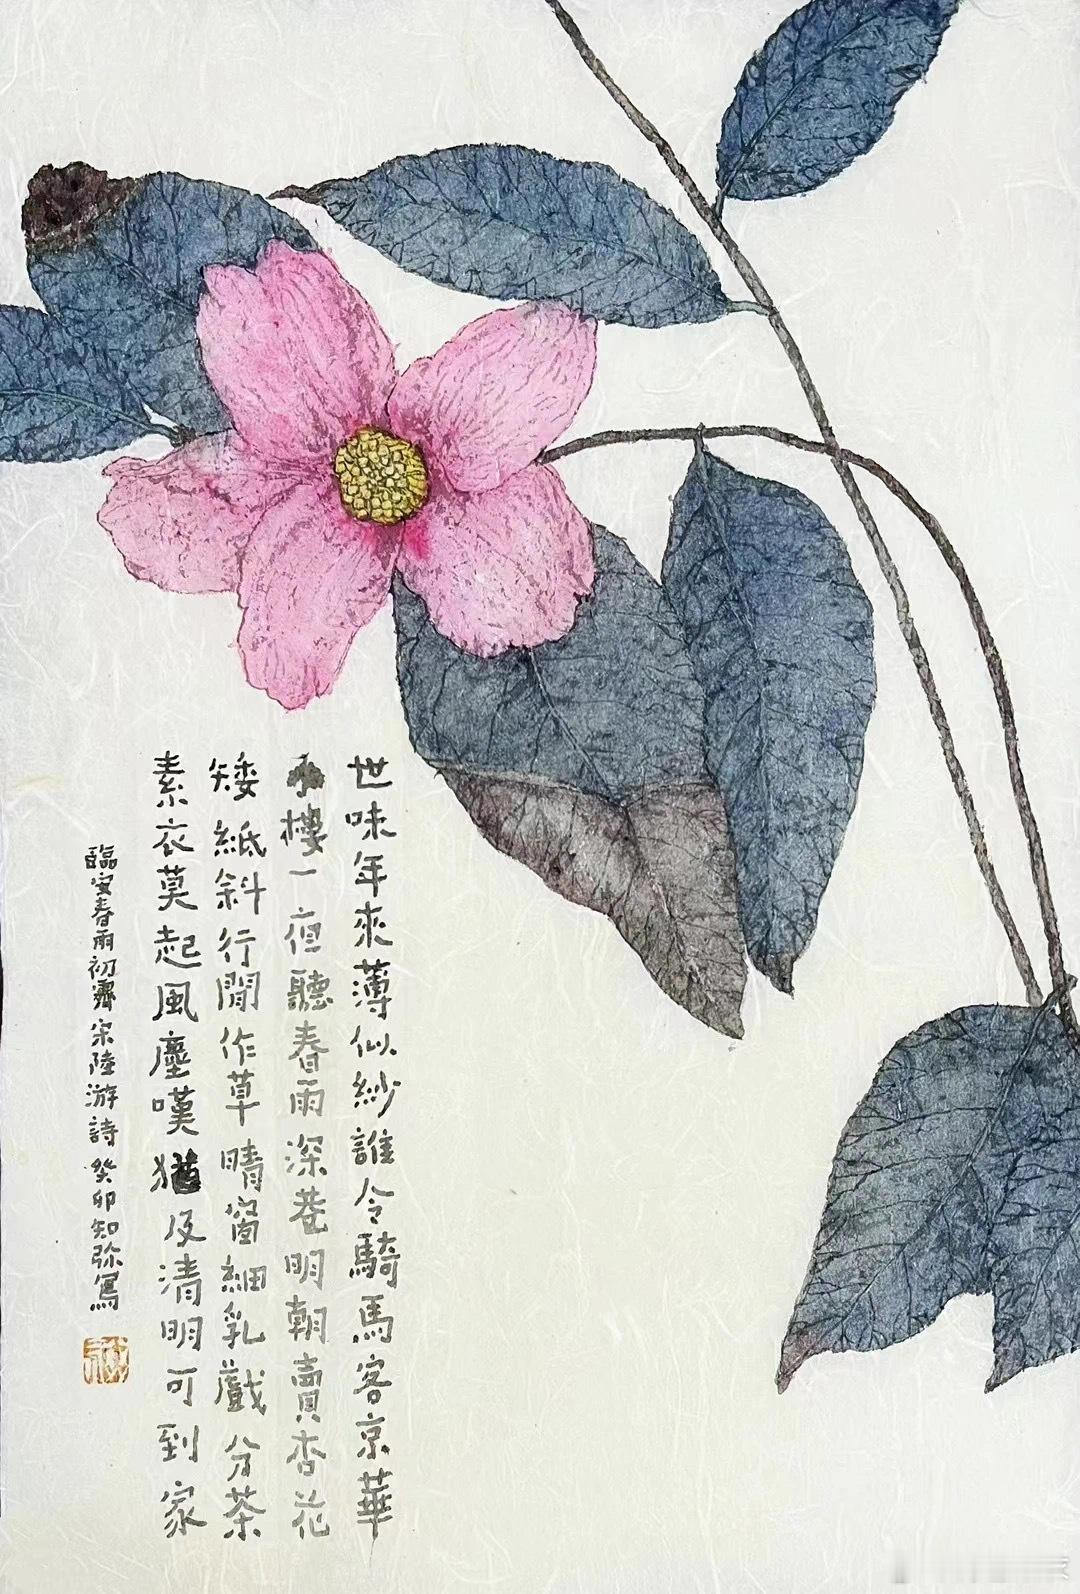 世味年來薄似紗誰令騎馬客京華
小樓一夜聽春雨深巷明朝賣杏花
矮紙斜行閒作草晴窗細乳戲分茶
素衣莫起風塵嘆猶及清明可到家
臨安春雨初霽宋陸游詩癸卯知弥寫